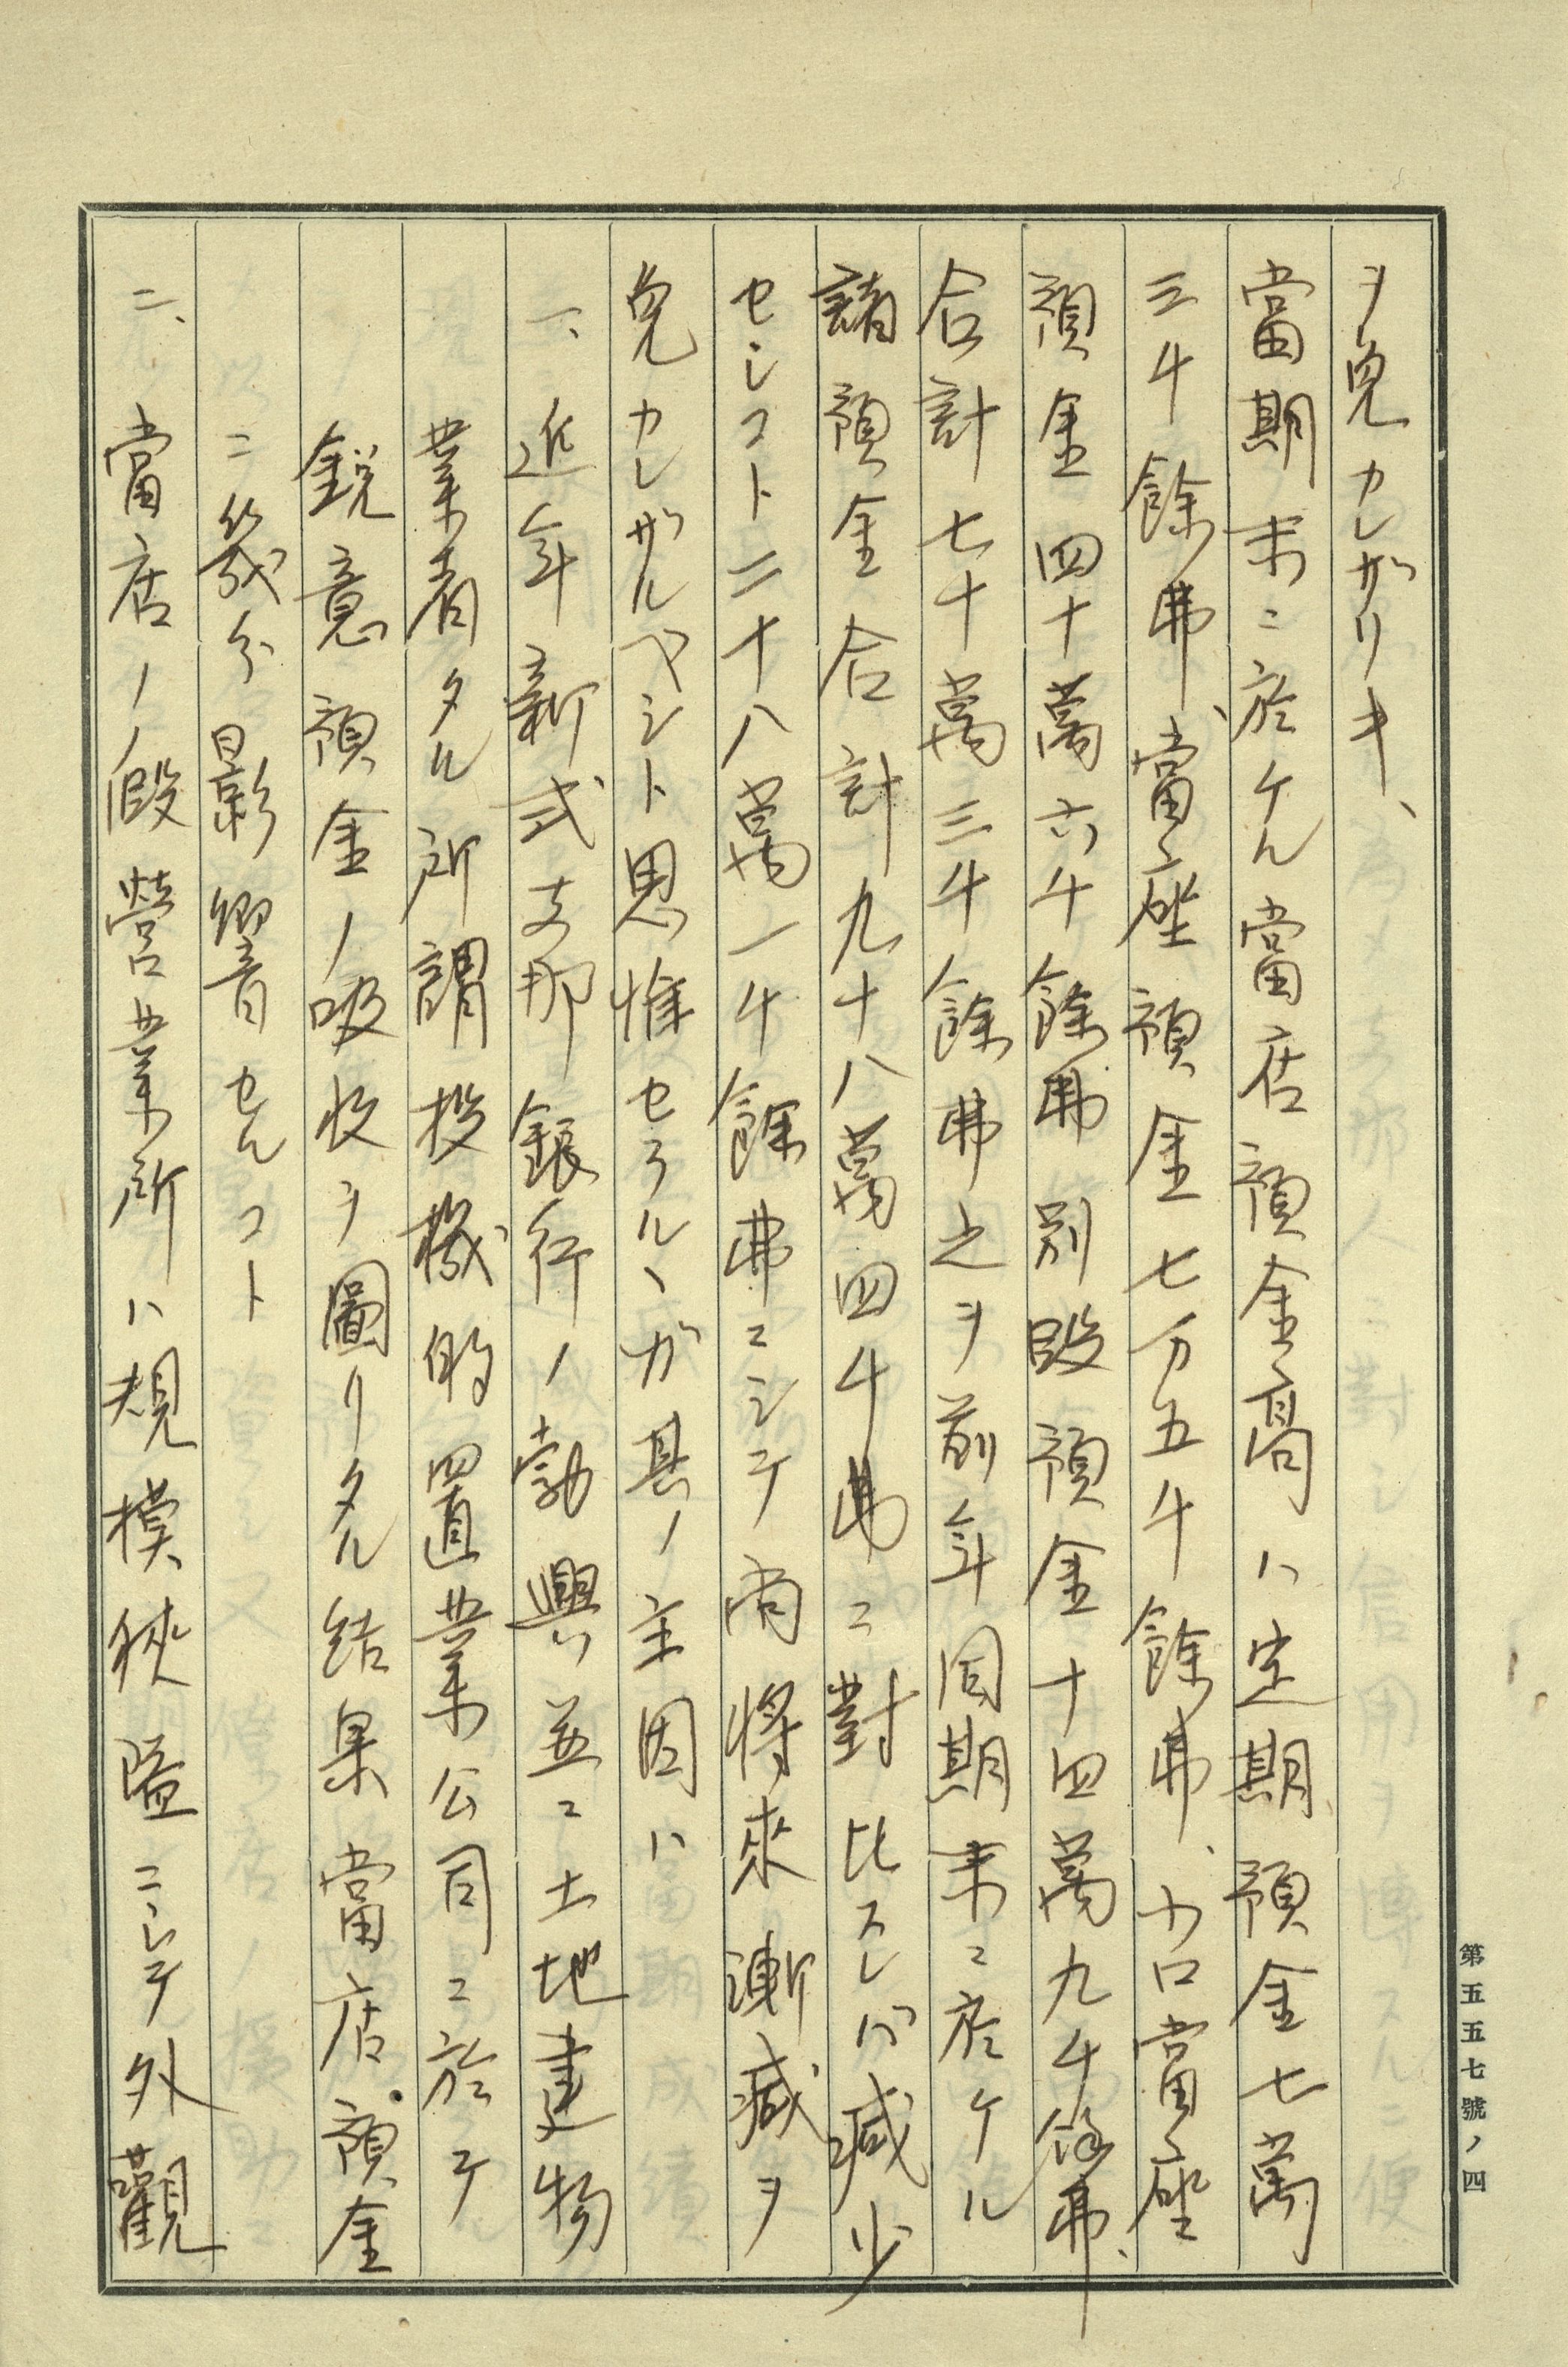 ヲ免カレザリキ、
當期末ニ於ケル當店預金高ハ定期預金七萬
三千餘弗、當座預金七万五千餘弗、小口當座
預金四十萬六千餘弗別段預金十四萬九千餘弗、
合計七十萬三千餘弗之ヲ前年同期末ニ於ケル
諸預金合計九十八萬四千弗ニ對比スレバ減少
セシコト二十八萬一千餘弗ニシテ尚將來漸減ヲ
免カレザルベシト思惟セラルヽガ其ノ主因ハ
一、近年新式支那銀行ノ勃興並ニ土地建物
業者タル所謂投機的置業公司ニ於テ
鋭意預金ノ吸收ヲ圖リタル結果當店預金
ニ幾分影響セルコト
二、當店ノ假營業所ハ規模狹隘ニシテ外觀
第五五七號ノ四